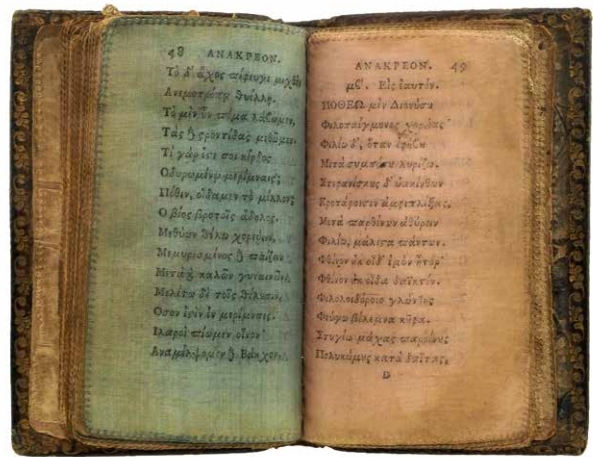 48 ΑΝΑΚΡΕΟΝ.
Τὸ δ' ἄχος πέφευγε μιχθὲν
Ἀνεμοτρόπῳ θυέλλῃ.
Τὸ μὲν οὖν πόμα λάβωμεν,
Τὰς δὲ φροντίδας μεθῶμεν.
Τί γάρ ἐστι σοι κέρδος
Ὀδυρωμένῳ μερίμναις;
Πόθεν, οἴδαμεν τὸ μέλλον;
Ὁ βίος βροτοῖς ἄδηλος.
Μεθύων θέλω χορεύειν,
Μεμυρισμένος δὲ παίζειν
Μετὰ καλῶν γυναικῶν.
Μελέτω δὲ τοῖς θέλουσιν,
Ὅσον ἐστὶν ἐν μερίμναις.
Ἱλαροὶ πίωμεν οἶνον
Ἀναμέλψομεν δὲ Βάκχον.
ΑΝΑΚΡΕΟΝ. 49
μβ'. Εἰς ἑαυτόν.
ΠΟΘΕΩ μὲν Διονύσου
Φιλοπαίγμονος χορείας
Φιλέω δ', ὅταν ἐφήβου
Μετὰ συμπότου λυρίζω.
Στεφανίσκους δ' ὑακίνθων
Κροτάφοισιν ἀμφιπλέξας,
Μετὰ παρθένων ἀθύρειν
Φιλέω, μάλιστα πάντων.
Φθόνον οὐκ οἶδ' ἐμὸν ἦτορ
Φθόνον οὐκ οἶδα δαϊκτόν.
Φιλολοιδόροιο γλώττης
Φεύγω βέλεμνα κοῦφα.
Στυγέω μάχας παροίνους
Πολυκώμους κατὰ δαῖτας,
D